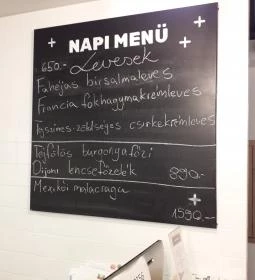 NAPI MENÜ
650.- Levesek
Fahéjas birsalmaleves
Francia fokhagymakrémleves
Tejszínes-zöldséges csirkekrémleves
Tejfölös burgonyafőzi
Dijoni lencsefőzelék 890.-
Mexikói malacragu
1590.-